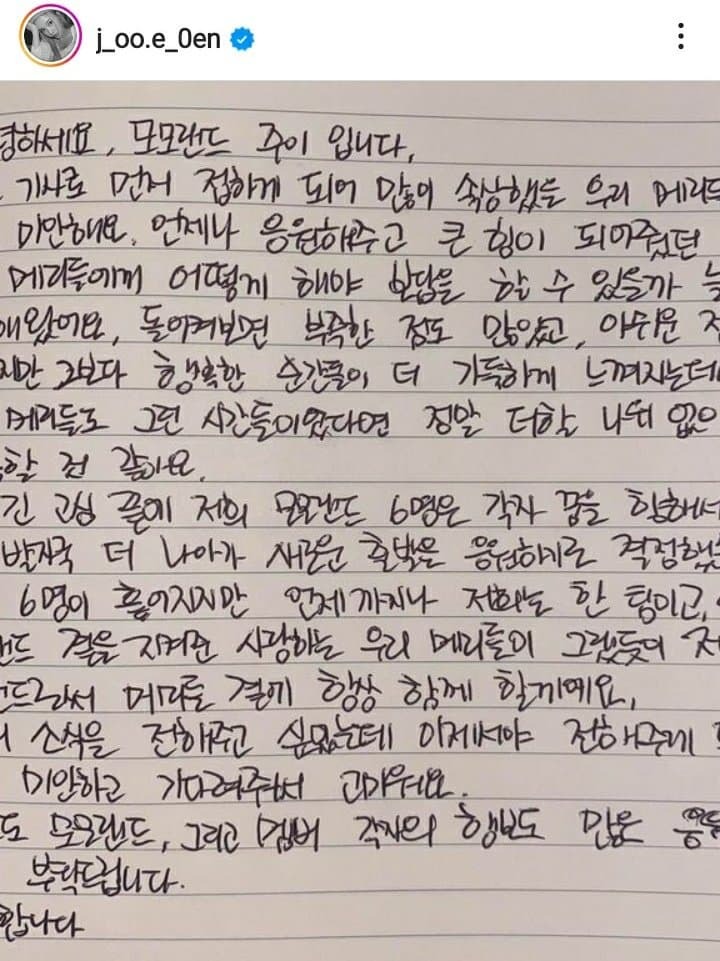 j_oo.e_0en
녕하세요, 모모랜드 주이 입니다.
기사로 먼저 접하게 되어 많이 속상했을 우리 메리들
미안해요. 언제나 응원해주고 큰 힘이 되어줬던
메리들에게 어떻게 해야 보답을 할 수 있을까 늘
해왔어요, 돌이켜보면 부족한 점도 많았고, 아쉬운 점
지만 그보다 행복한 순간들이 더 가득하게 느껴지는데
메리들도 그런 시간들이었다면 정말 더할 나위 없으
할 것 같아요.
긴 고심 끝에 저희 모모랜드 6명은 각자 꿈을 향해서
발자국 더 나아가 새로운 출발을 응원하기로 결정했
6명이 흩어지지만 언제까지나 저희는 한 팀이고,
랜드 곁을 지켜준 사랑하는 우리 메리들이 그랬듯이 저
랜드로서 메리들 곁에 항상 함께 할거예요,
소식을 전해주고 싶었는데 이제서야 전해주게
미안하고 기다려줘서 고마워요.
도 모모랜드, 그리고 멤버 각자의 행보도 많은 응원
부탁드립니다.
합니다